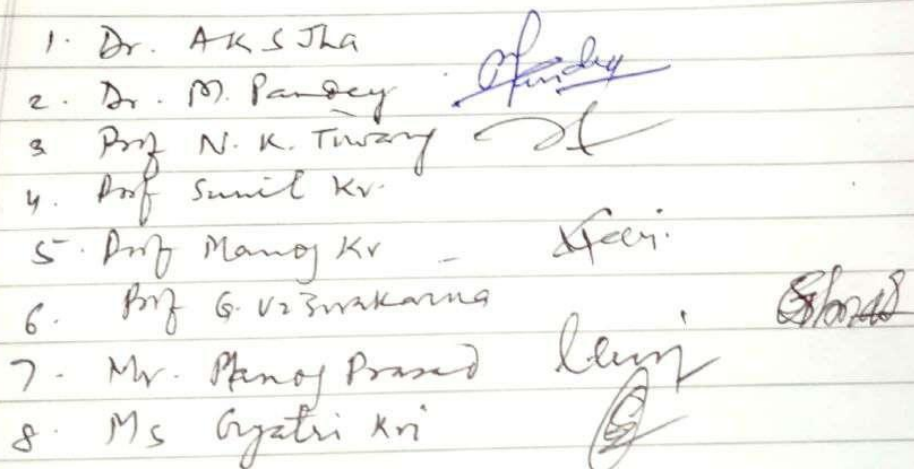 1. Dr. AKS Jha
2. Dr. M. Pandey Pandey
3 Prof N. K. Tiwary
4. Prof Sunil Kr.
5. Prof Manoj Kr -
6. Prof G. Vishwakarma
7. Mr. Manoj Prasad
8. Ms Gyatri Kri